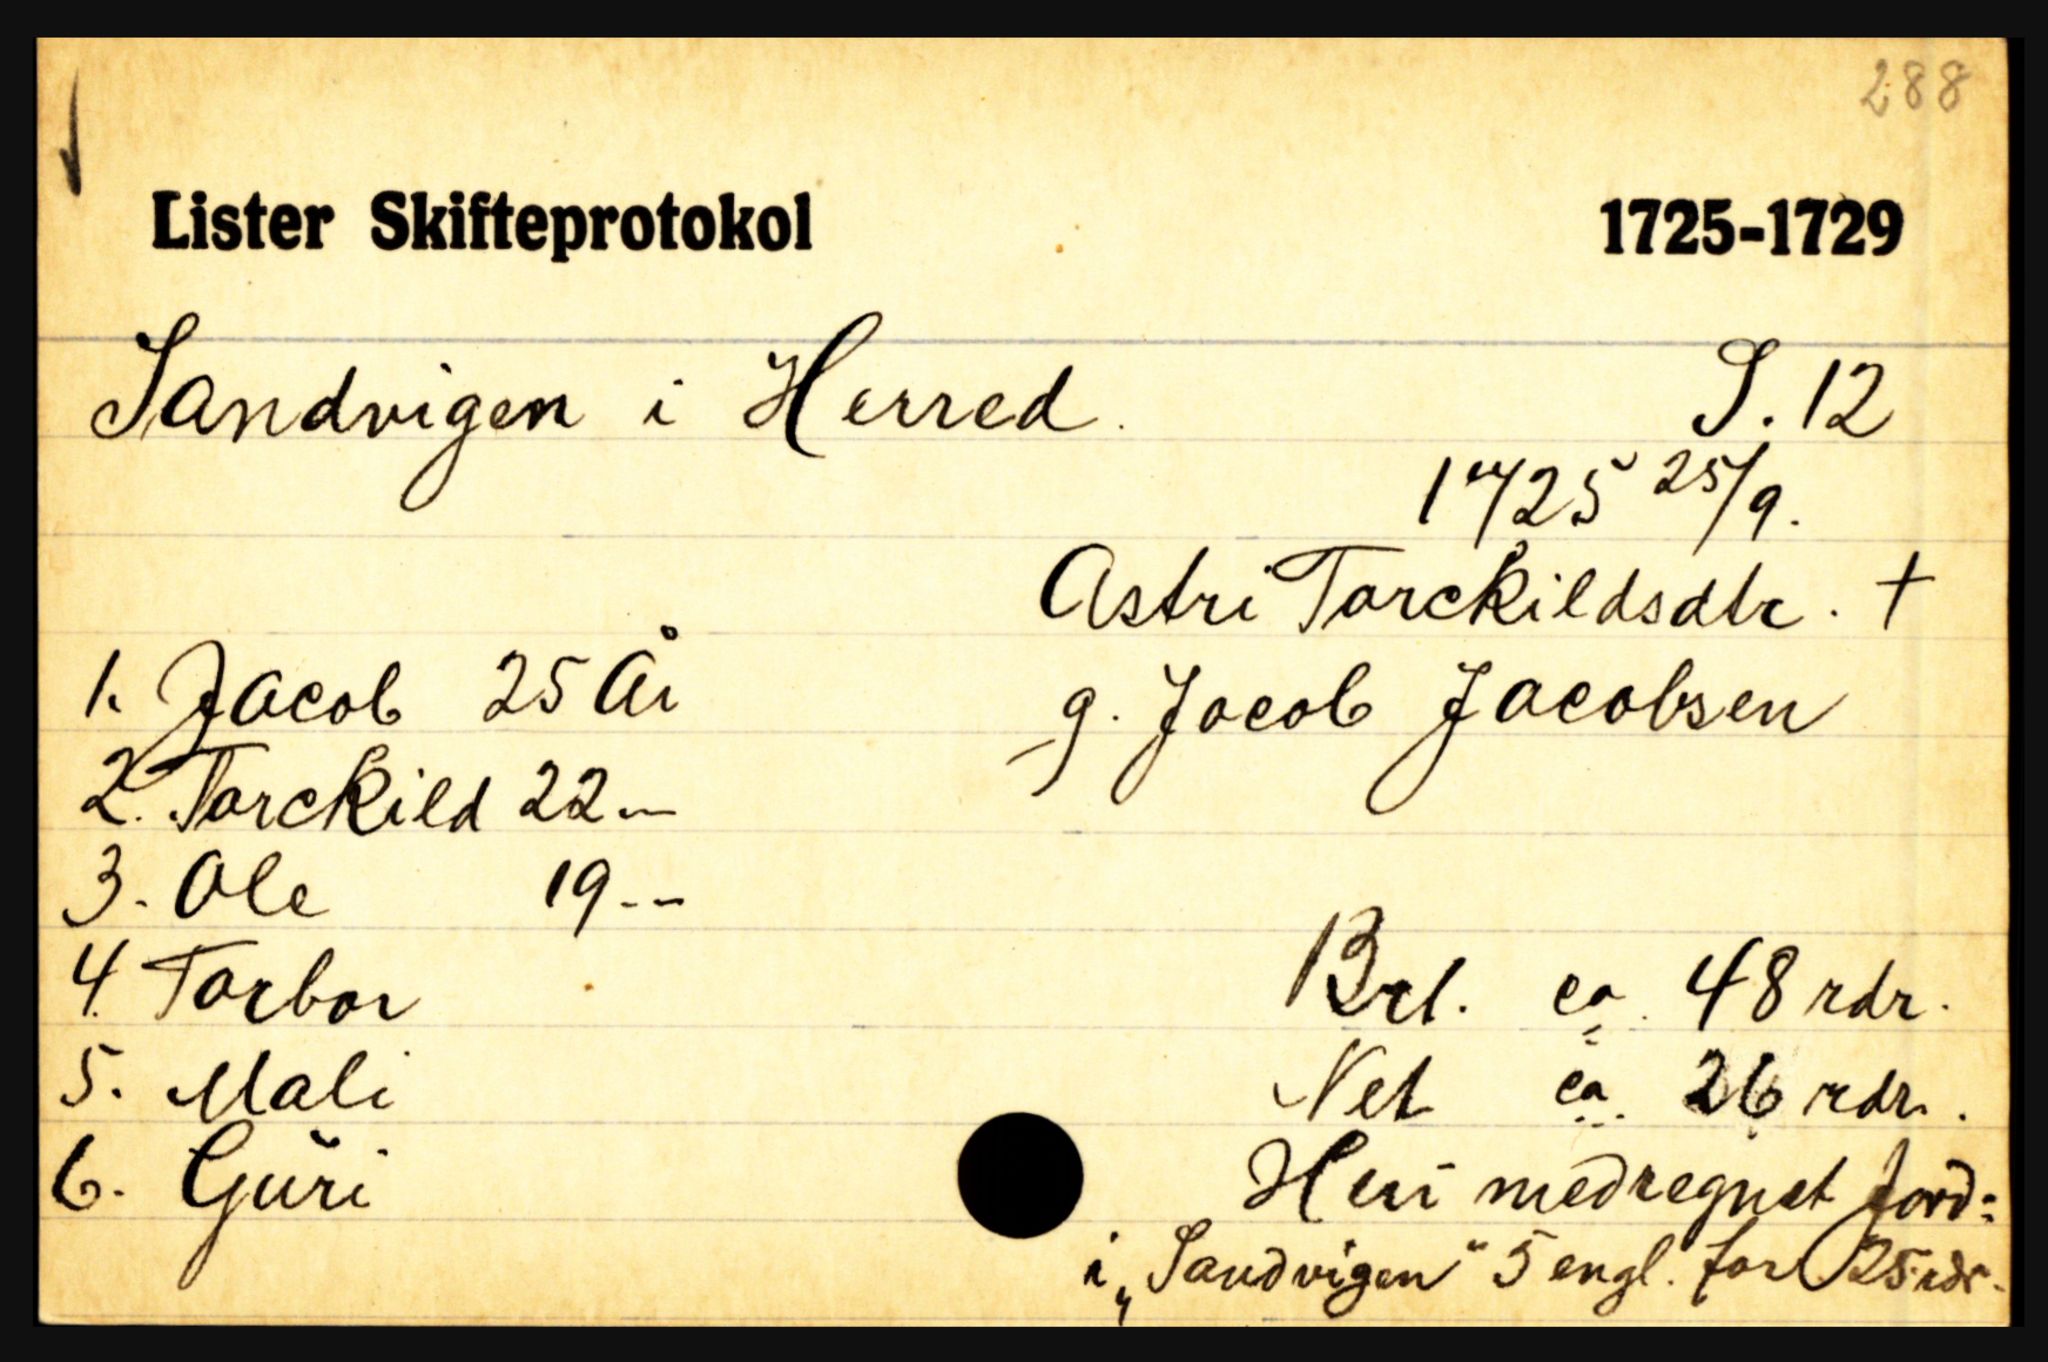 288
Lister Skifteprotokol 1725-1729
Sandvigen i Herred. S. 12
1725 25/9.
Astri Torckildsdtr. †
1. Jacob 25 År g. Jacob Jacobsen
2. Torckild 22 —
3. Ole 19 --
4. Torbor Brt. ca. 48 rdr.
5. Mali Net ca. 26 rdr.
6. Guri Heri medregnet Jord:
i „Sandvigen" 5 engl. for 25 rdr.